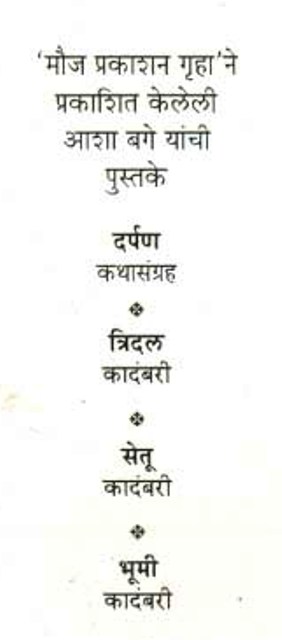 ‘मौज प्रकाशन गृहा’ने
प्रकाशित केलेली
आशा बगे यांची
पुस्तके
दर्पण
कथासंग्रह
त्रिदल
कादंबरी
सेतू
कादंबरी
भूमी
कादंबरी